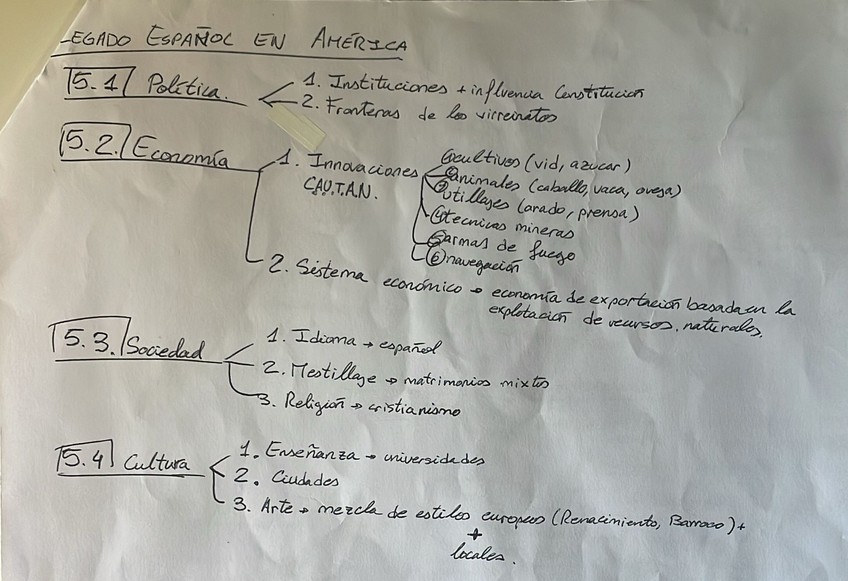 LEGADO ESPAÑOL EN AMÉRICA
5.1 Política.
1. Instituciones + influencia Constitución
2. Fronteras de los virreinatos
5.2. Economía
1. Innovaciones
C.A.U.T.A.N.
① cultivos (vid, azucar)
② animales (caballo, vaca, oveja)
③ utillajes (arado, prensa)
④ tecnicas mineras
⑤ armas de fuego
⑥ navegación
2. Sistema económico → economía de exportación basada en la
explotación de recursos naturales.
5.3. Sociedad
1. Idioma → español
2. Mestillaje → matrimonios mixtos
3. Religión → cristianismo
5.4 Cultura
1. Enseñanza → universidades
2. Ciudades
3. Arte → mezcla de estilos europeos (Renacimiento, Barroco) +
+
locales.